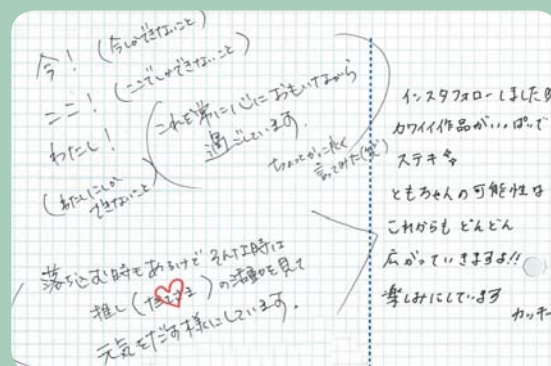 今！（今しかできないこと）
ここ！（ここでしかできないこと）
わたし！
（わたしにしか
できないこと）
これを常に心におもいながら
過ごしています。
ちょっとかっこよく
言ってみた（笑）
落ち込む時もあるけど そんな時は
推し（ ）の活動を見て
元気をだす様にしています。
インスタフォローしました
カワイイ作品がいっぱいで
ステキ
ともちゃんの可能性は
これからも どんどん
広がっていきますよ!!
楽しみにしています
カッキー